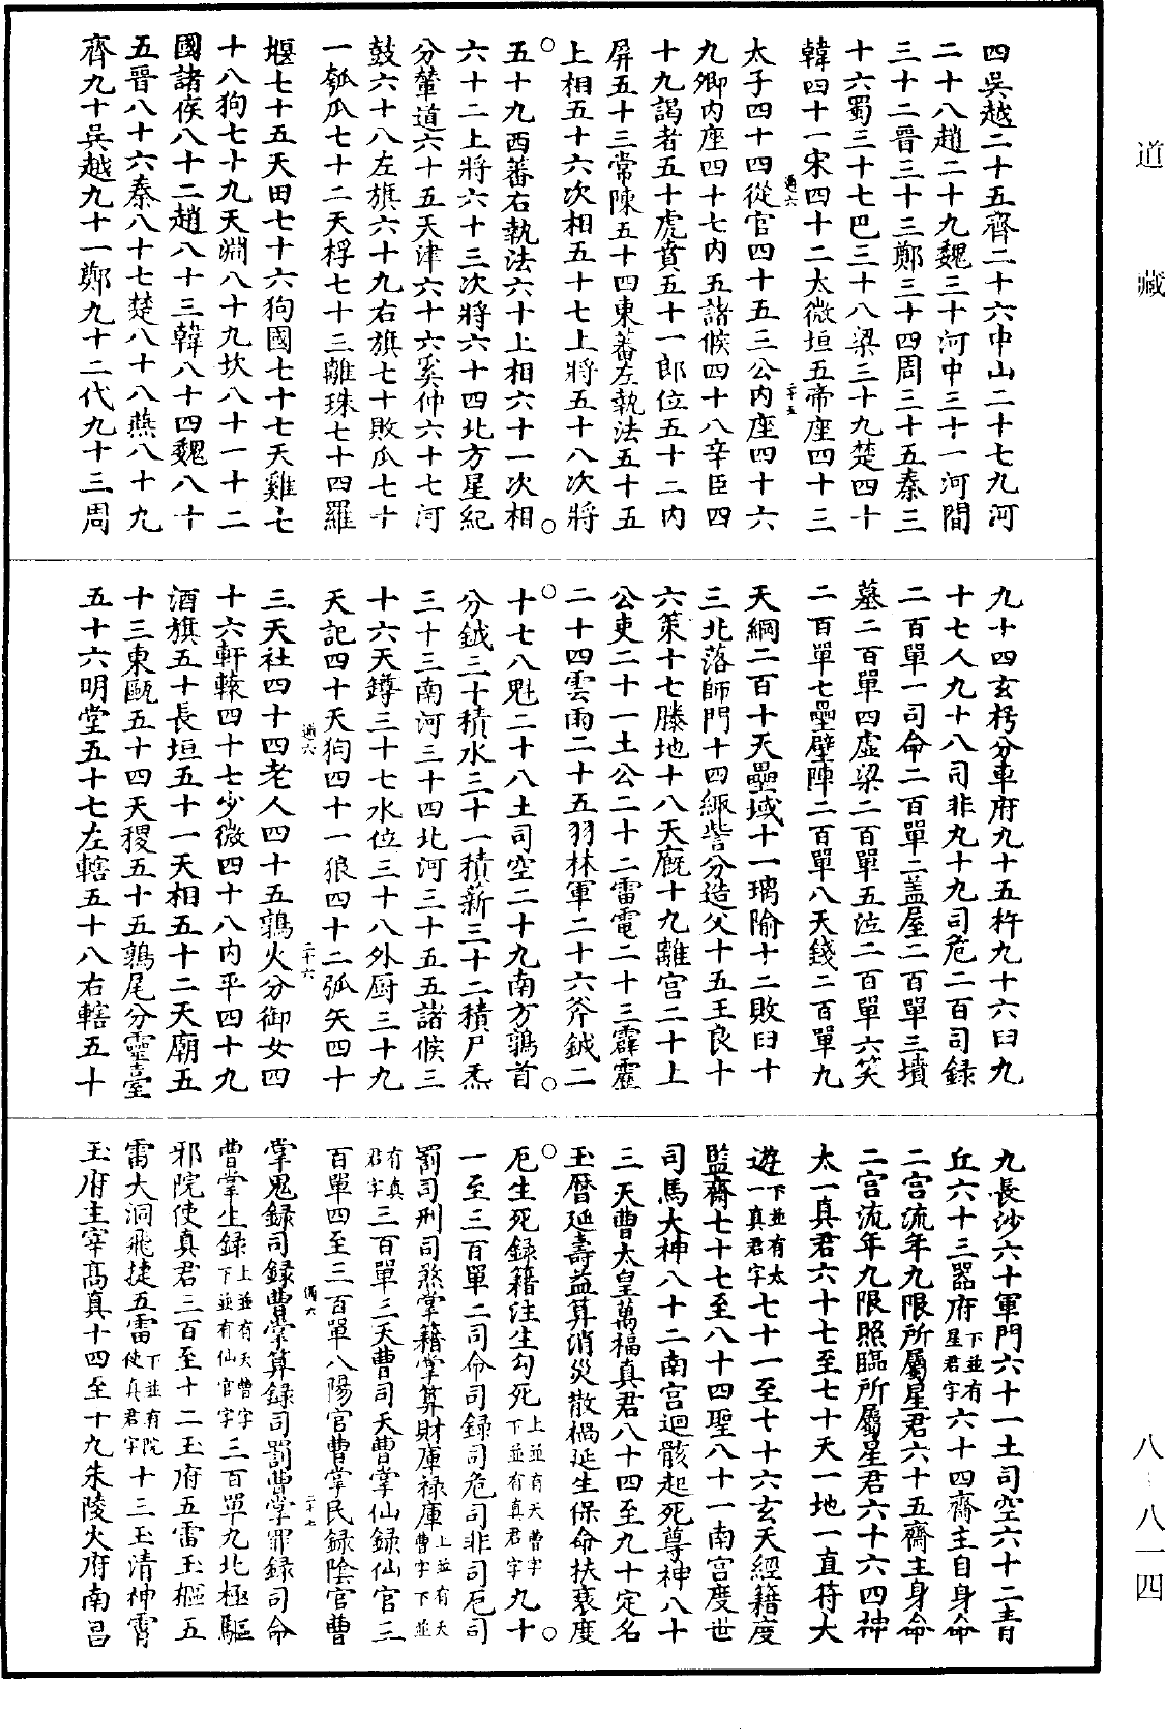 道藏
八-八一四
四吳越二十五齊二十六中山二十七九河
二十八趙二十九魏三十河中三十一河間
三十二晉三十三鄭三十四周三十五秦三
十六蜀三十七巴三十八梁三十九楚四十
韓四十一宋四十二太微垣五帝座四十三
過六
二十五
太子四十四從官四十五三公內座四十六
九卿內座四十七內五諸候四十八辛臣四
十九謁者五十虎賁五十一郎位五十二內
屏五十三常陳五十四東蕃左執法五十五
上相五十六次相五十七上將五十八次將
五十九西蕃右執法六十上相六十一次相
六十二上將六十三次將六十四北方星紀
分輦道六十五天津六十六奚仲六十七河
鼓六十八左旗六十九右旗七十敗瓜七十
一瓠瓜七十二天桴七十三離珠七十四羅
堰七十五天田七十六狗國七十七天雞七
十八狗七十九天淵八十九坎八十一十二
國諸侯八十二趙八十三韓八十四魏八十
五晉八十六秦八十七楚八十八燕八十九
齊九十吳越九十一鄭九十二代九十三周
九十四玄枵分車府九十五杵九十六臼九
十七人九十八司非九十九司危二百司錄
二百單一司命二百單二蓋屋二百單三墳
墓二百單四虛梁二百單五泣二百單六哭
二百單七壘壁陣二百單八天錢二百單九
天綱二百十天壘域十一璃隃十二敗臼十
三北落師門十四娵訾分造父十五王良十
六策十七騰地十八天廐十九離宮二十上
公吏二十一土公二十二雷電二十三霹靂
二十四雲雨二十五羽林軍二十六斧鉞二
十七八魁二十八土司空二十九南方鶉首
分鉞三十積水三十一積薪三十二積尸炁
三十三南河三十四北河三十五五諸候三
十六天鐏三十七水位三十八外厨三十九
天記四十天狗四十一狼四十二弧矢四十
過六
二十六
三天社四十四老人四十五鶉火分御女四
十六軒轅四十七少微四十八內平四十九
酒旗五十長垣五十一天相五十二天廟五
十三東甌五十四天稷五十五鶉尾分靈臺
五十六明堂五十七左轄五十八右轄五十
九長沙六十軍門六十一土司空六十二青
丘六十三器府下並有星君字六十四齋主自身命
二宮流年九限所屬星君六十五齋主身命
二宮流年九限照臨所屬星君六十六四神
太一真君六十七至七十天一地一直符大
遊下並有太一真君字七十一至七十六玄天經籍度
監齋七十七至八十四聖八十一南宮度世
司馬大神八十二南宮迴骸起死尊神八十
三天曹太皇萬福真君八十四至九十定名
玉曆延壽益算消災散禍延生保命扶衰度
厄生死錄籍注生勾死上並有天曹字下並有真君字九十
一至三百單二司命司錄司危司非司厄司
罰司刑司煞掌籍掌算財庫祿庫上並有天曹字下並
有真君字三百單三天曹司天曹掌仙錄仙官三
百單四至三百單八陽官曹掌民錄陰官曹
過六
二十七
掌鬼錄司錄曹掌算錄司罰曹掌罪錄司命
曹掌生錄上並有天曹字下並有仙官字三百單九北極驅
邪院使真君三百至十二玉府五雷玉樞五
雷大洞飛捷五雷下並有院使真君字十三玉清神霄
玉府主宰高真十四至十九朱陵火府南昌